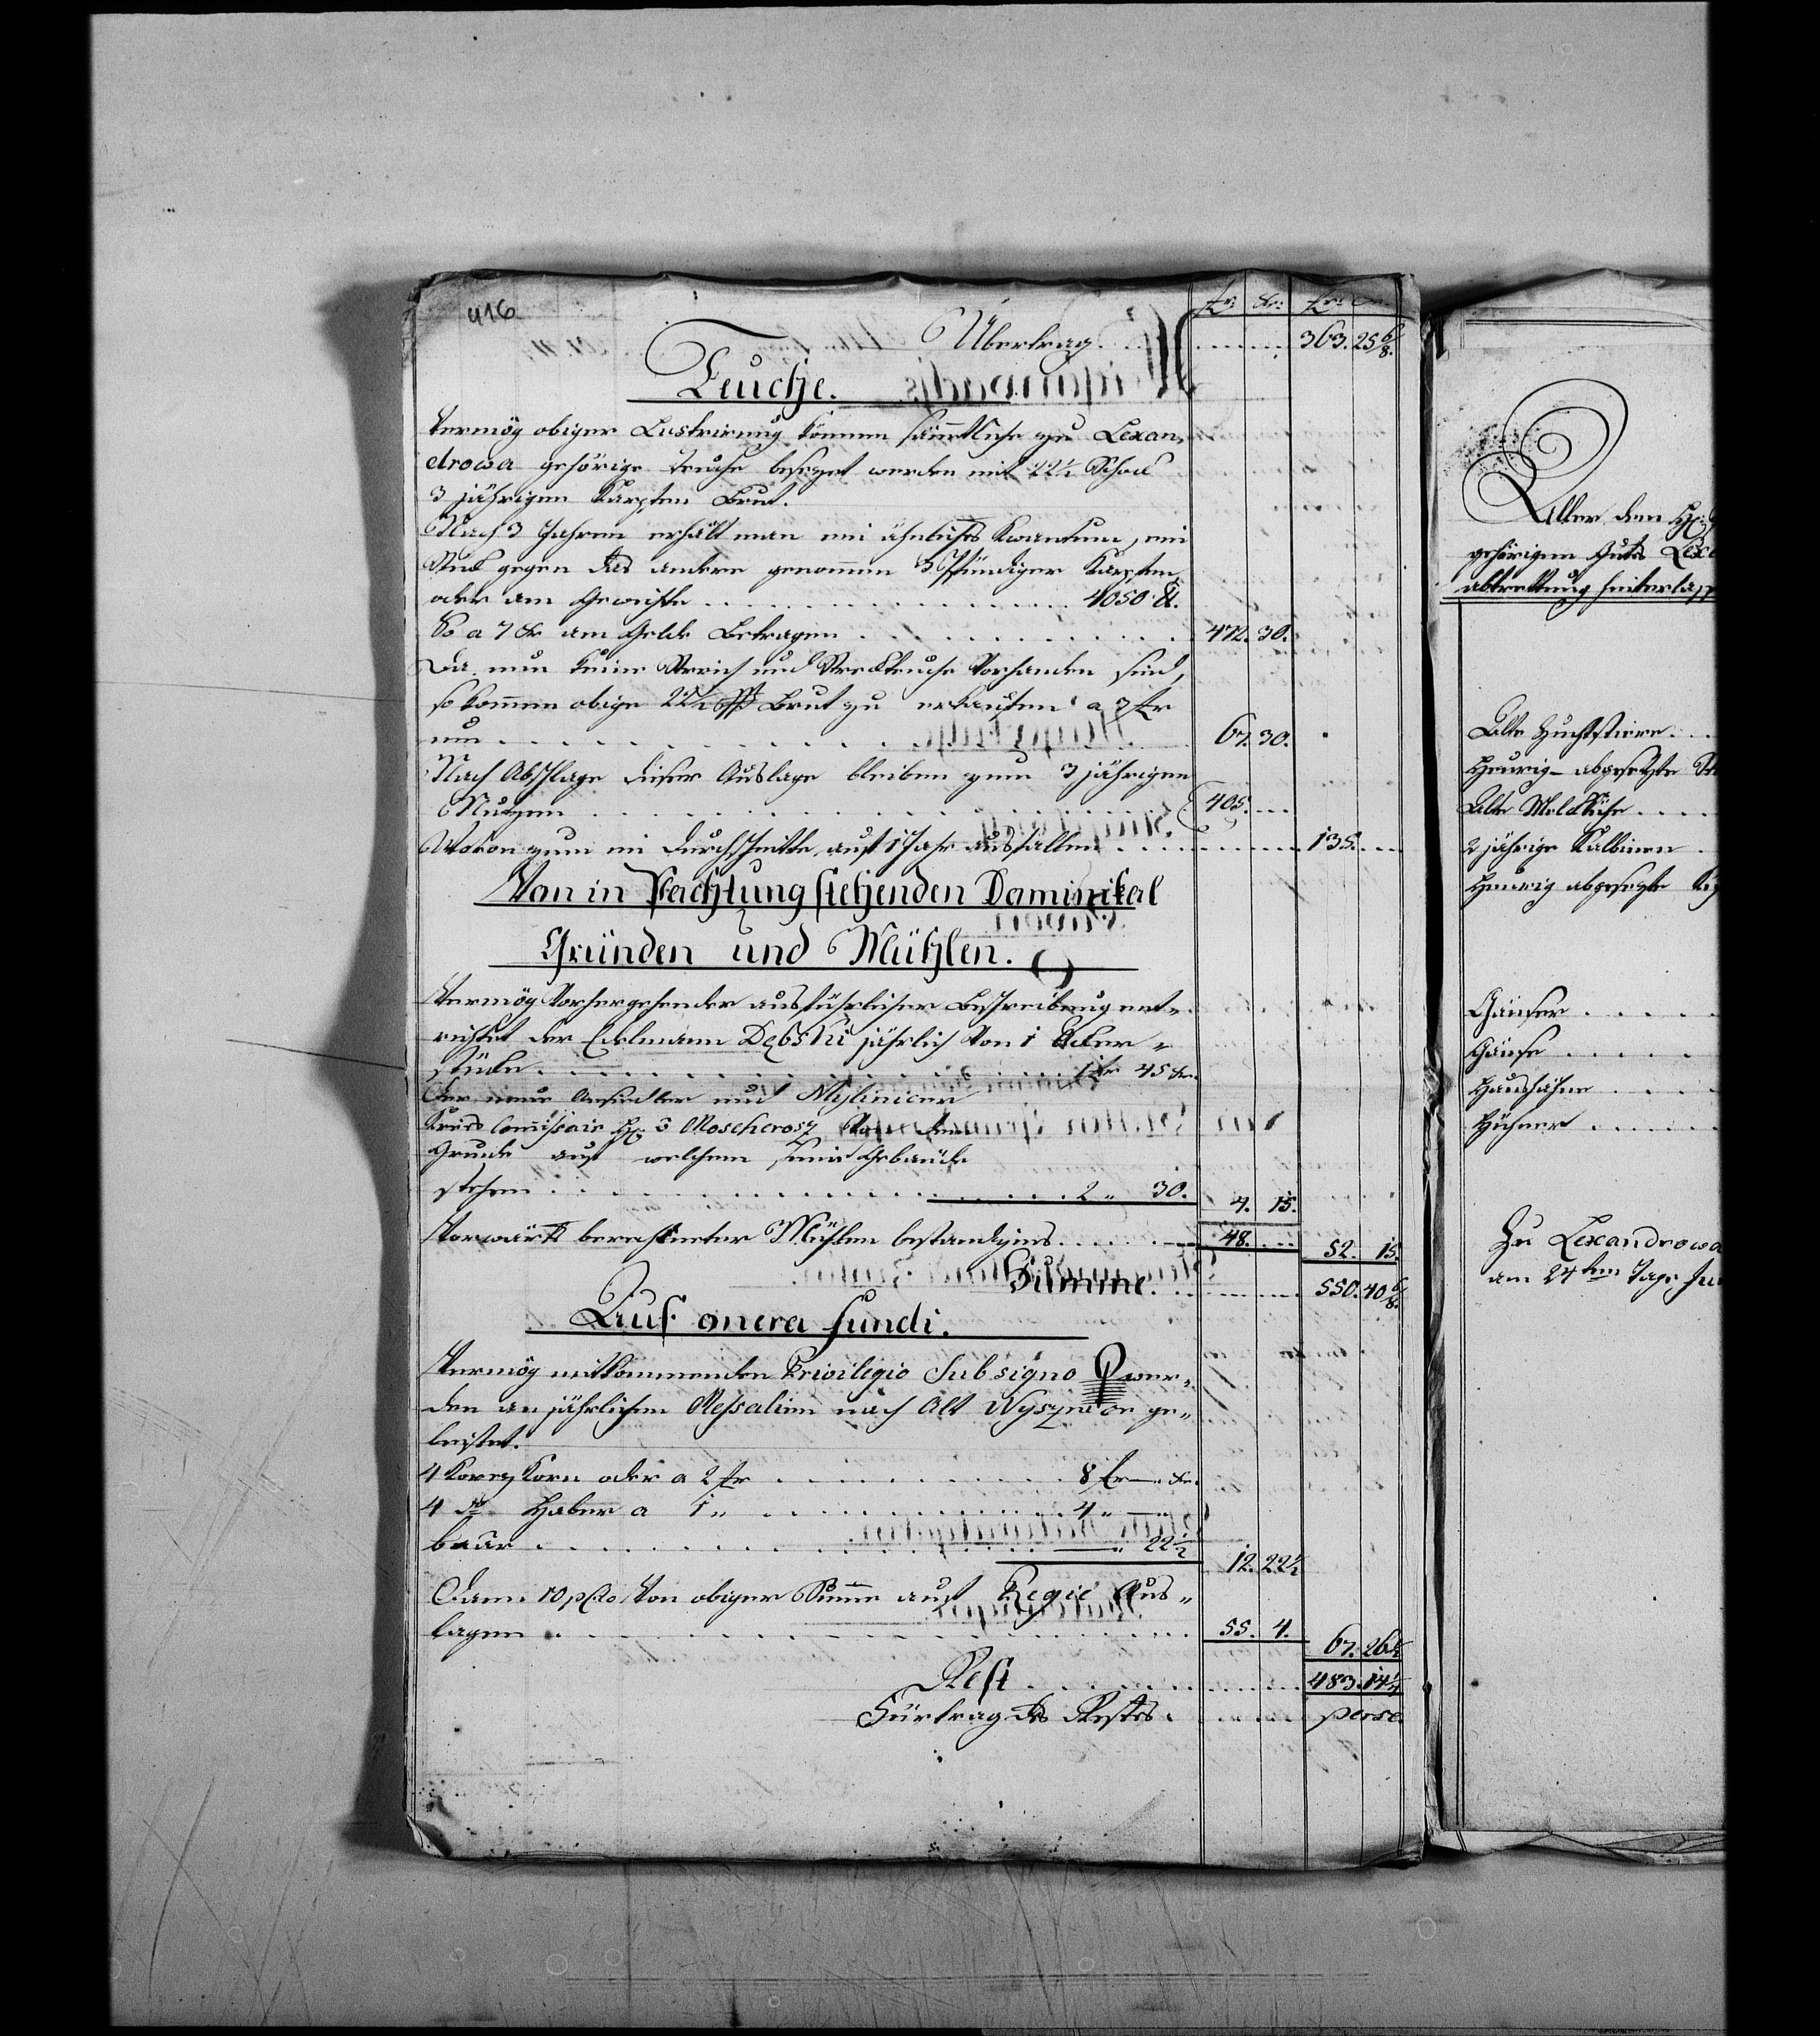 416
fr: Xr: fr: Xr:
Übertrag . . . 363. 25 6/8.
Teuche.
Vermög obiger Lustrirung können sämtliche zu Lexan,
drowa gehörige Teuche besezet werden mit 22½ Schock
3 jährigen Karpfen Brut.
Nach 3 Jahren erhält man ein ähnliches Kwantum, ein
Stuck gegen das andere genommen 3 Pfündiger Karpfen
oder am Gewichte . . . 4050 ℔.
So a 7 Xr am Gelde Betragen . . . 472. 30.
Da nun keine Streich und Streckteuche Vorhanden sind,
so kommen obige 22½ Brut zu erkaufen a 3 fr
um . . . 67. 30.
Nach Abschlage dieser Auslage bleiben zum 3 jährigen
Nutzen . . . 405. . . .
Wovon zum im durchschnitte auf 1 Jahr ausfallen . . . 135. . . .
Von in Pachtung stehenden Dominikal
Gründen und Mühlen.
Vermög Vorhergehender ausführlicher Beschreibung ent„
richtet der Edelmann Dębski jährlich Von 1 Acker„
stücke . . . 1 fr 45 Xr.
Der neue Ansiedler und Myslinicer
Kreis Commissair H: v Moscherosz Von dem
Grunde auf welchem seine Gebäude
stehen . . . 2 „ 30. 4. 15.
Vorwärts berechneter Mühlen bestandzins . . . 48. . . . 52. 15.
Summe . . . 550. 40 6/8.
Auf onera fundi.
Vermög mitkommenden Privilegio Sub signo wer„
den an jährlichen Messalien nach Alt Wyszni on ge„
leistet.
4 Korez Korn oder a 2 fr . . . 8 fr — Xr.
4 do Haber a 1 „ . . . 4 „ —
baar . . . — „ 22½ 12. 22½
Dann 10 pCto Von obiger Summe auf Regie Aus„
lagen . . . 55. 4. 67. 26½
Rest . . . 483. 14¼
Fürtrag des Restes . . . perse.
Aller dem H:
gehörigen Guts Lexa
abtrettung hinterlass
Alte Zuchtstiere . . .
Heurig abgesetzte
Alte Melckkühe . . . .
2 jährige Kalbinen .
Heurig abgesetzte
Gänser . . . . .
Gänse . . . . .
Haushahne . . . .
Hühner . . . . .
Zu Lexandrowa
am 24ten Tage Ju